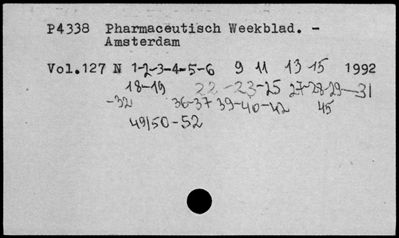 P4338 Pharmaceutisch Weekblad. -
Amsterdam
Vol.127 N 1-2-3-4-5-6 9 11 13 15 1992
18-19 22-23-25 27-28-29-31
-32 36-37 39-40-42 45
49/50-52